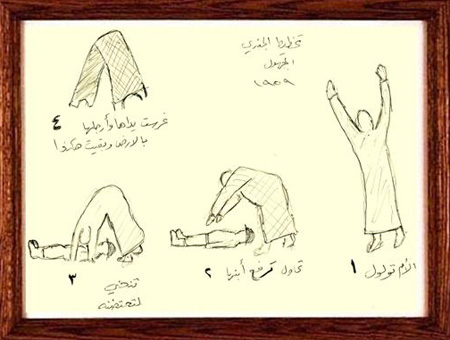 تخطيط الجندي
المجهول
١٩٥٩
١ الأم تولول
٢ تحاول ترفع أبنها
٣
تنحني
لتحتضنه
٤ غرست يداها وأرجلها
بالأرض وبقيت هكذا